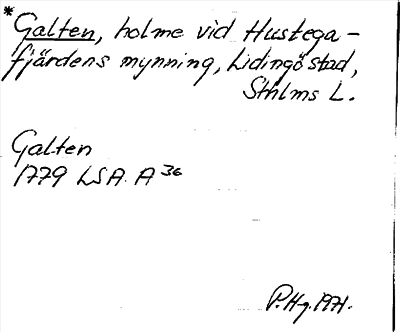 *Galten, holme vid Hustega-
fjärdens mynning, Lidingö stad,
Sthlms L.
Galten
1779 LSA. A 36
P.Hg.1971.